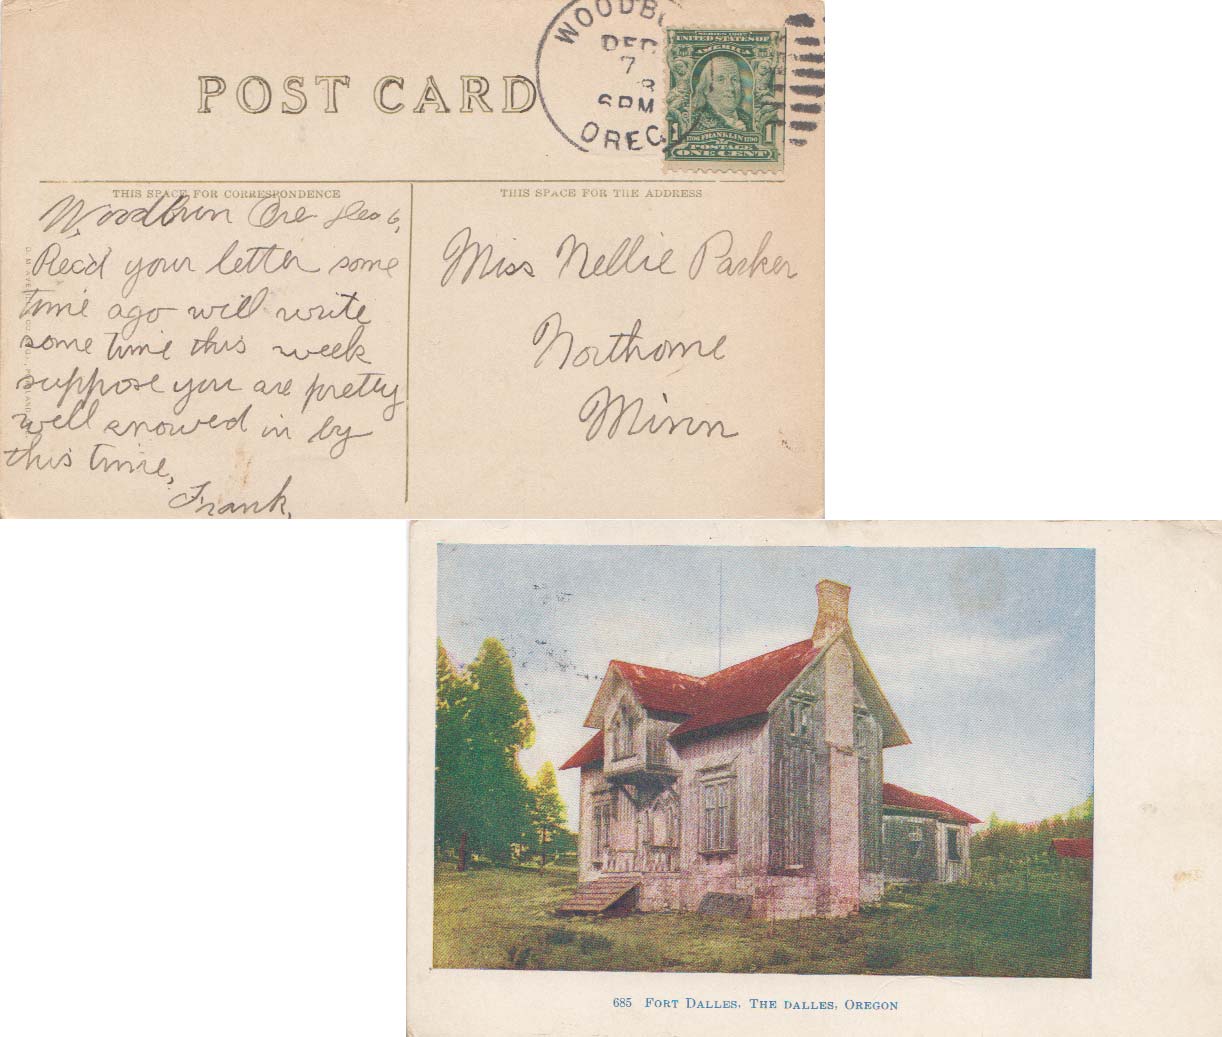 POST CARD
WOODBU
DEC
7
8
6 PM
OREG
SERIES 1902
UNITED STATES OF
AMERICA
1 1706 FRANKLIN 1790 1
POSTAGE
ONE CENT
THIS SPACE FOR CORRESPONDENCE
Woodburn Ore Dec 6,
Rec'd your letter some
time ago will write
some time this week
suppose you are pretty
well snowed in by
this time,
Frank,
THIS SPACE FOR THE ADDRESS
Miss Nellie Parker
Northome
Minn
685 FORT DALLES, THE DALLES, OREGON